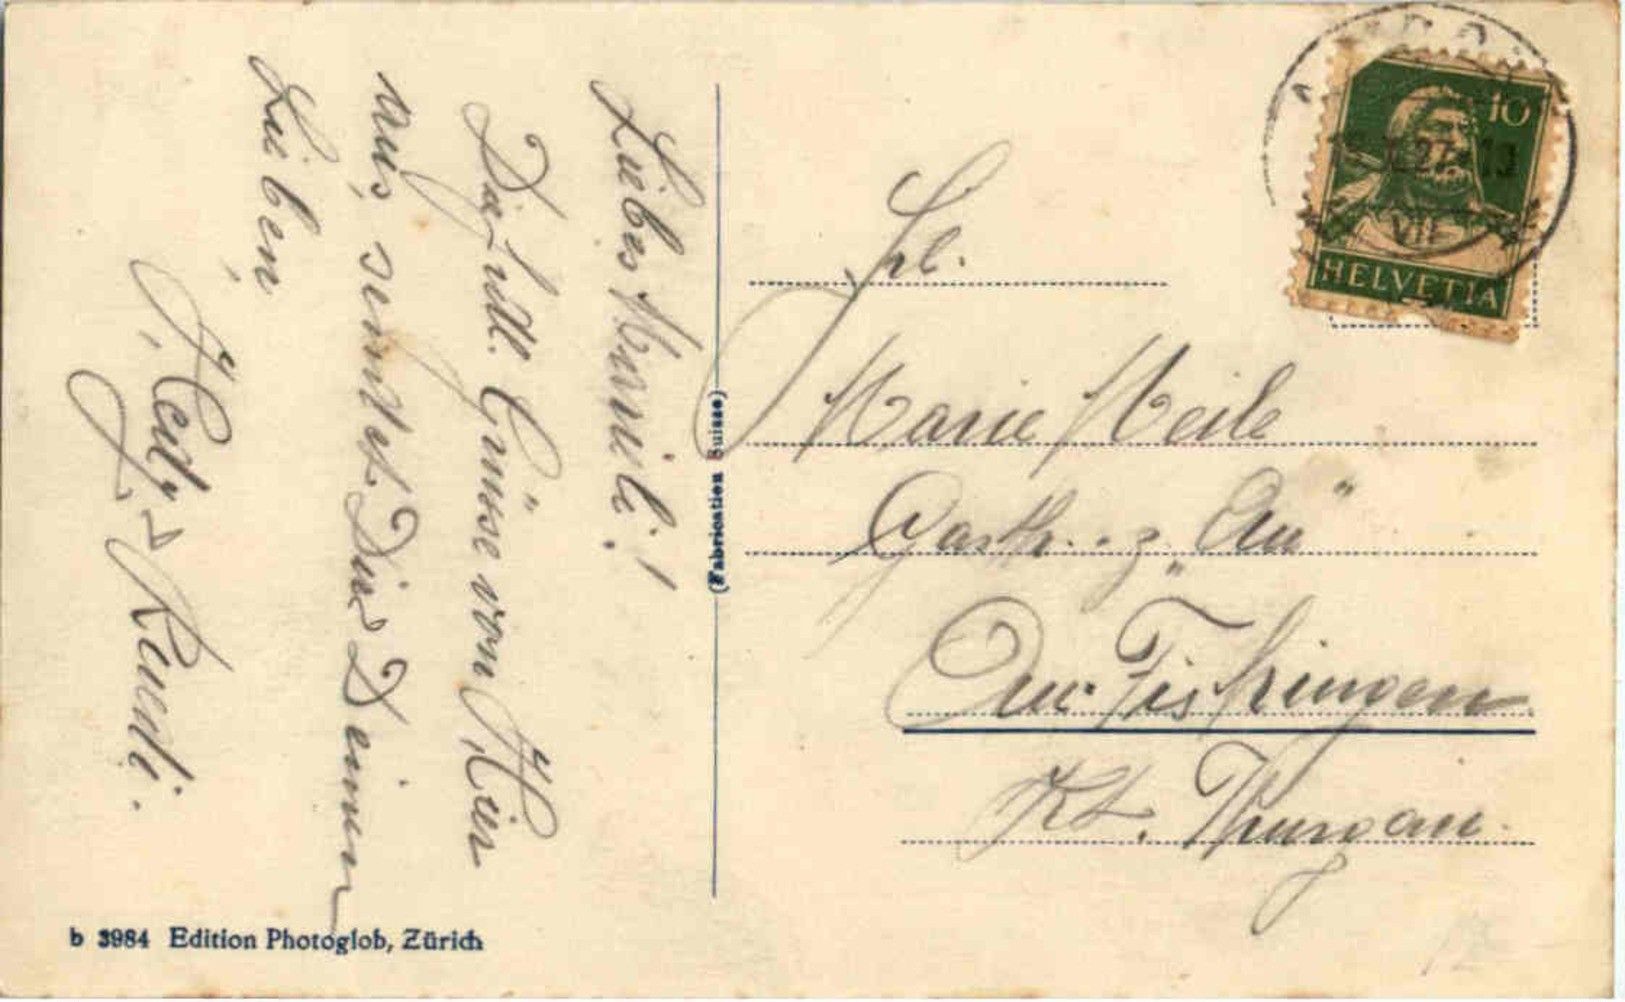 Liebes Marieli!
Die hrdl. Grüsse von Hier
aus, sendet Dir Deinen
Lieben,
Hedy & Ruedi.
(Fabrication Suisse)
Frl.
Marie Meile
Gasth. z. „Au"
Au-Fischingen
Kt. Thurgau.
10
HELVETIA
VII
b 3984 Edition Photoglob, Zürich